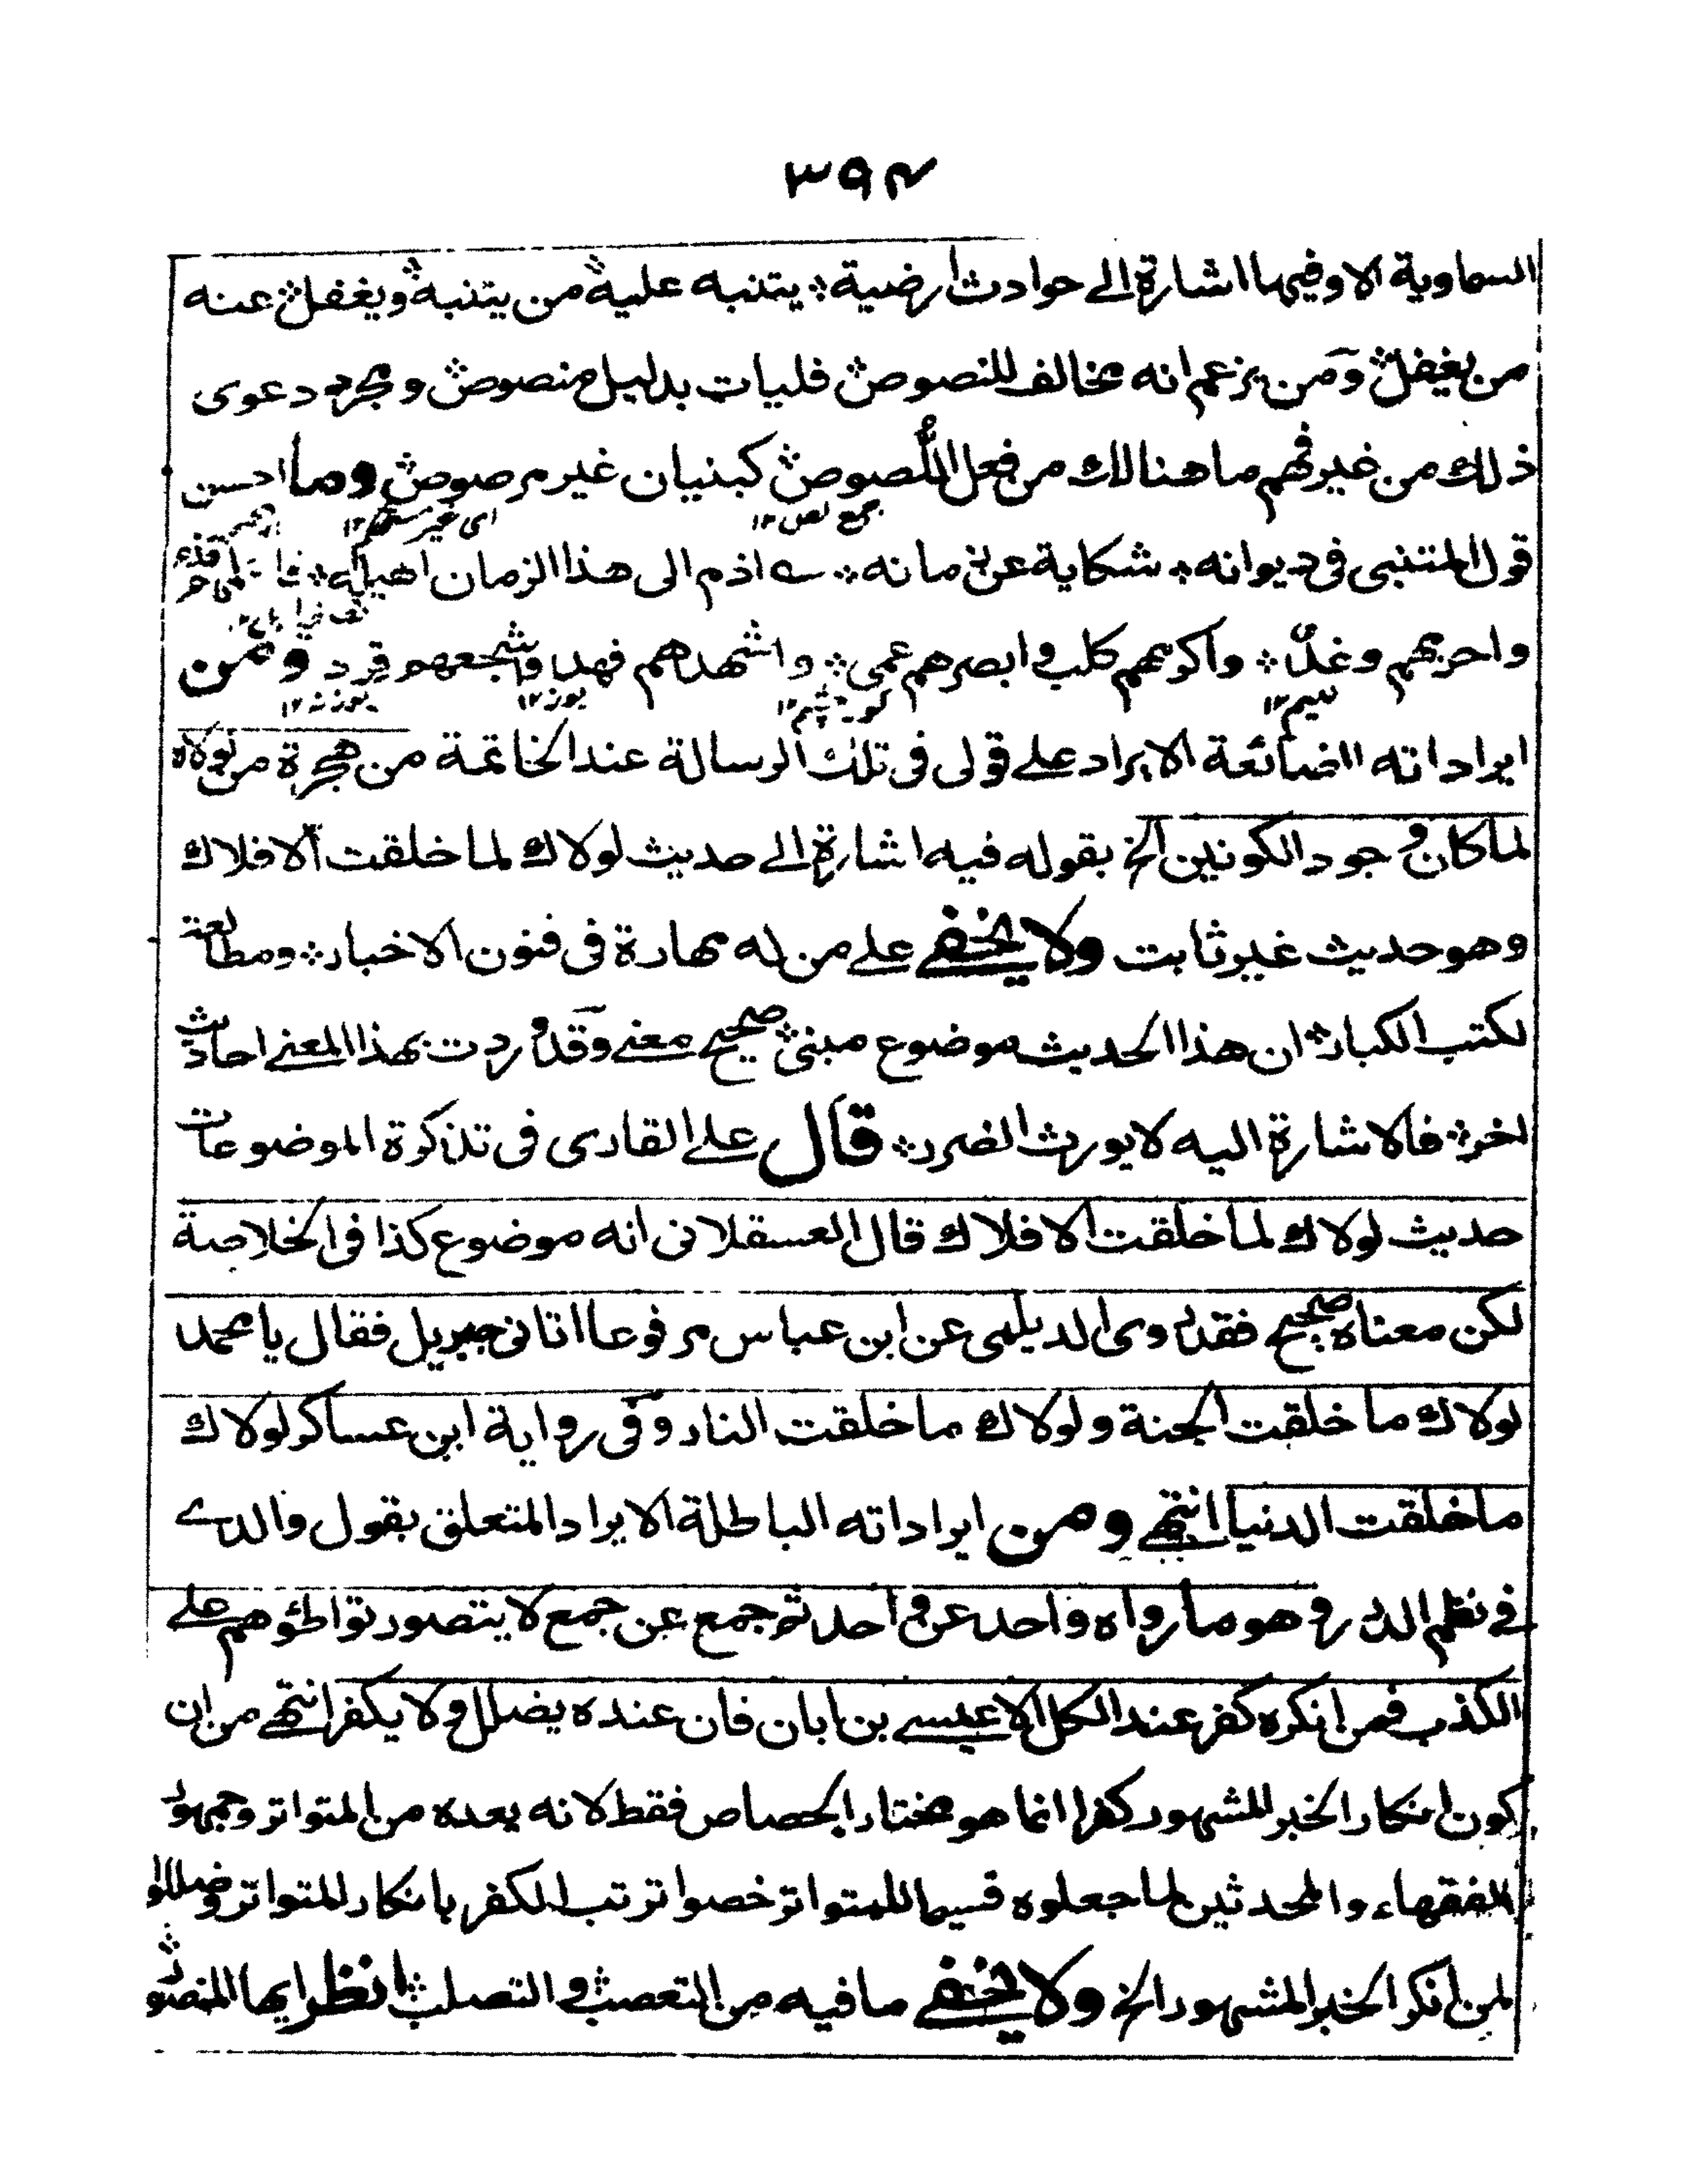 ٣٩٤
السماوية الا وفيها اشارة الى حوادث ارضية؞ يتنبه عليه؞ من يتنبه؞ ويغفل؞ عنه
من يغفل؞ ومن يزعم انه مخالف للنصوص؞ فليات بدليل منصوص؞ ومجرد دعوى
ذلك من غير فهم ما هنالك من فعل اللُّصوص؞ كبنيان غير مرصوص؞ وما احسن
جمع لص ١٢ اى غير مستحكم ١٢
قول المتنبى فى ديوانه؞ شكاية عن زمانه؞ اذم الى هذا الزمان اهيله؞
واحزمهم وغد؞ واكرمهم كلب وابصرهم عمى؞ واشهدهم فهد واشجعهم قرد ومن
لئيم ١٢ كور چشم ١٢ يوز ١٢ بوزنه ١٢
ايراداته الضائعة الايراد على قولى فى تلك الرسالة عند الخاتمة من هجرة من لولاه
لما كان وجود الكونين الخ بقوله فيه اشارة الى حديث لولاك لما خلقت الافلاك
وهو حديث غير ثابت ولا يخفى على من له مهارة فى فنون الاخبار؞ ومطالعة
لكتب الكبار؞ ان هذا الحديث موضوع مبنى؞ صحيح معنى وقد وردت بهذا المعنى احاديث
اخر؞ فالاشارة اليه لا يورث الضرر؞ قال على القارى فى تذكرة الموضوعات
حديث لولاك لما خلقت الافلاك قال العسقلانى انه موضوع كذا فى الخلاصة
لكن معناه صحيح فقد روى الديلمى عن ابن عباس مرفوعا اتانى جبريل فقال يا محمد
لولاك ما خلقت الجنة ولولاك ما خلقت النار وفى رواية ابن عساكر لولاك
ما خلقت الدنيا انتهى ومن ايراداته الباطلة الايراد المتعلق بقول والدى
فى نظم الدرر وهو ما رواه واحد عن واحد ثم جمع عن جمع لا يتصور تواطؤهم على
الكذب فمن انكره كفر عند الكل الا عيسى بن ابان فان عنده يضلل ولا يكفر انتهى من ان
كون انكار الخبر المشهور كفرا انما هو مختار الجصاص فقط لانه يعده من المتواتر وجمهور
الفقهاء والمحدثين لما جعلوه قسيما للمتواتر خصوا ترتب الكفر بانكار المتواتر وضللوا
لمن انكر الخبر المشهور الخ ولا يخفى ما فيه من التعصب؞ والتصلب؞ انظر ايها المنصور؞